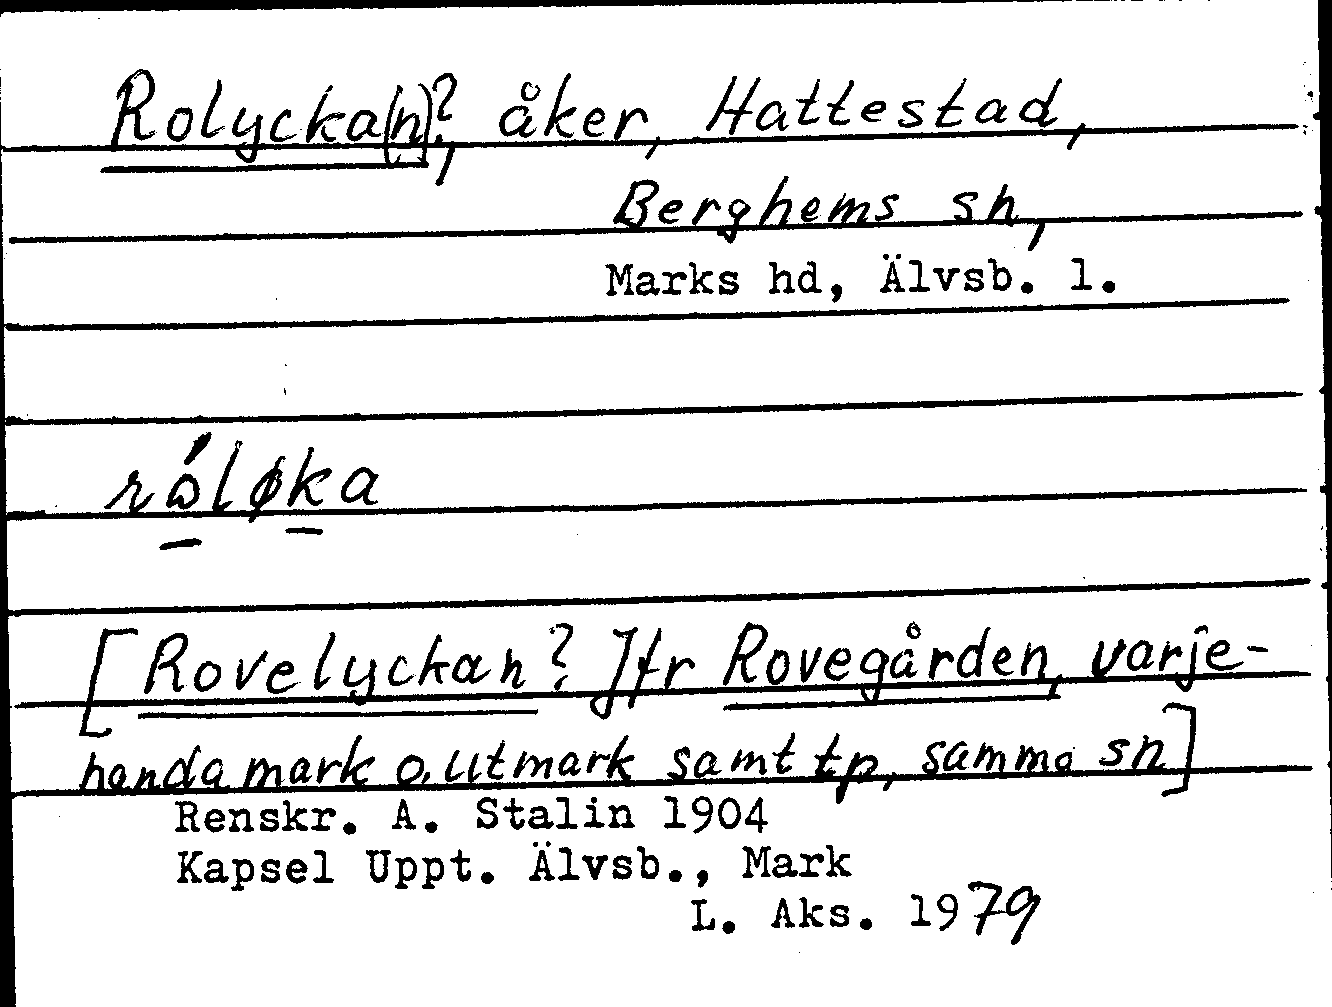 Rolycka(n)?, åker, Hattestad,
Berghems sn,
Marks hd, Älvsb. l.
róløka
[Rovelyckan? Jfr Rovegården, varje-
handa mark o. utmark samt tp, samma sn]
Renskr. A. Stalin 1904
Kapsel Uppt. Älvsb., Mark
L. Aks. 1979